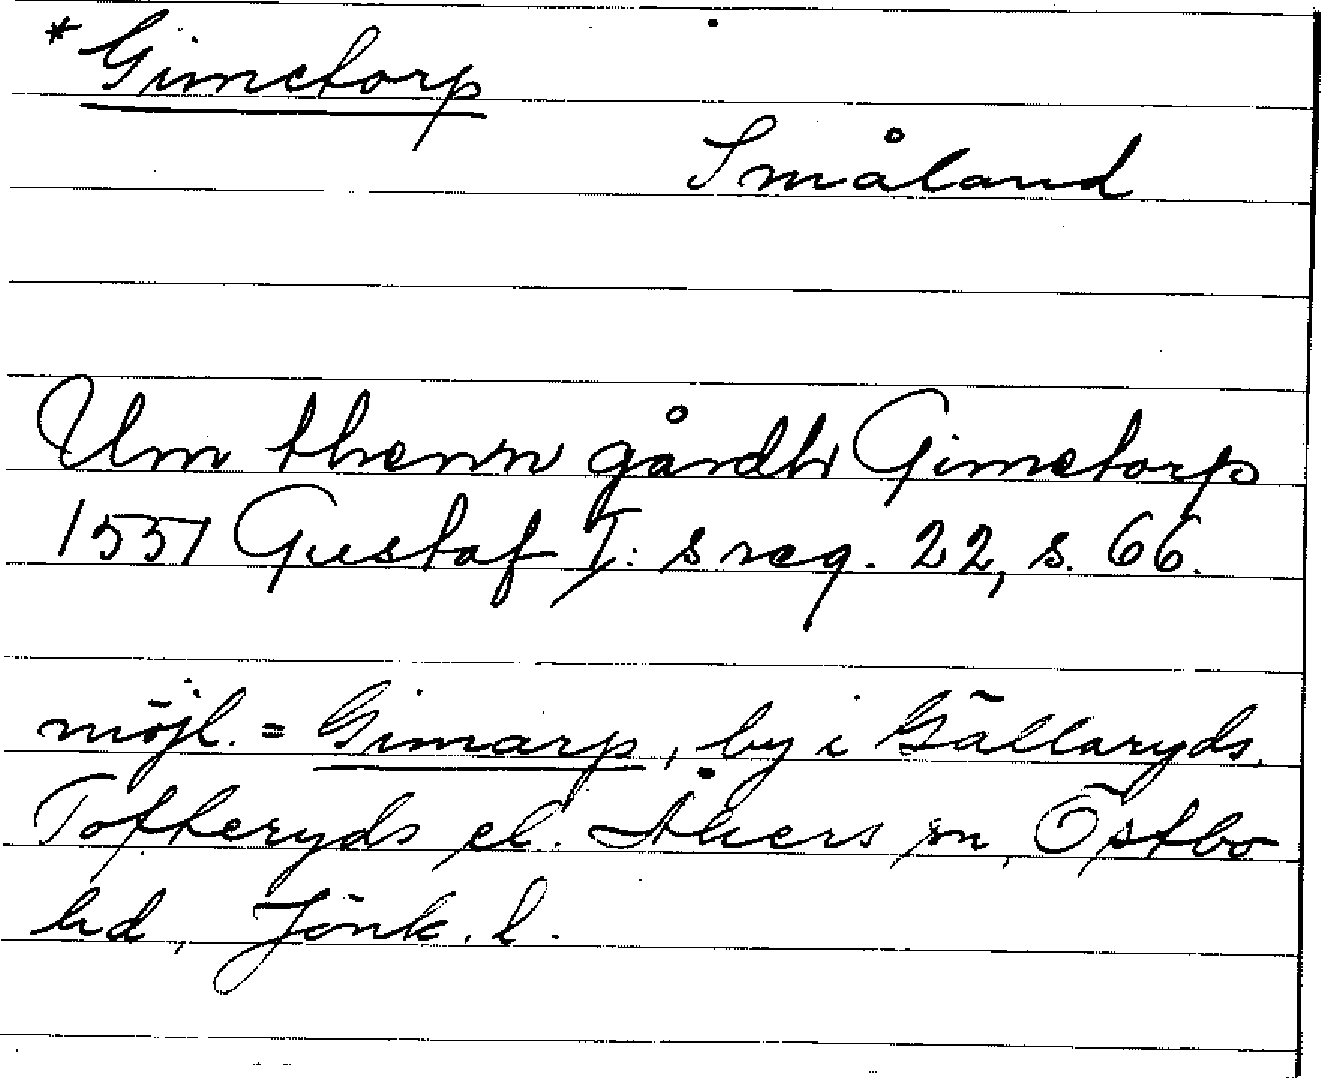 * Gimetorp
Småland
Um thenn gårdh Gimetorp
1551 Gustaf I:s reg. 22, s. 66.
möjl. = Gimarp, by i Gällaryds,
Tofteryds el. Åkers sn, Östbo
hd, Jönk. l.